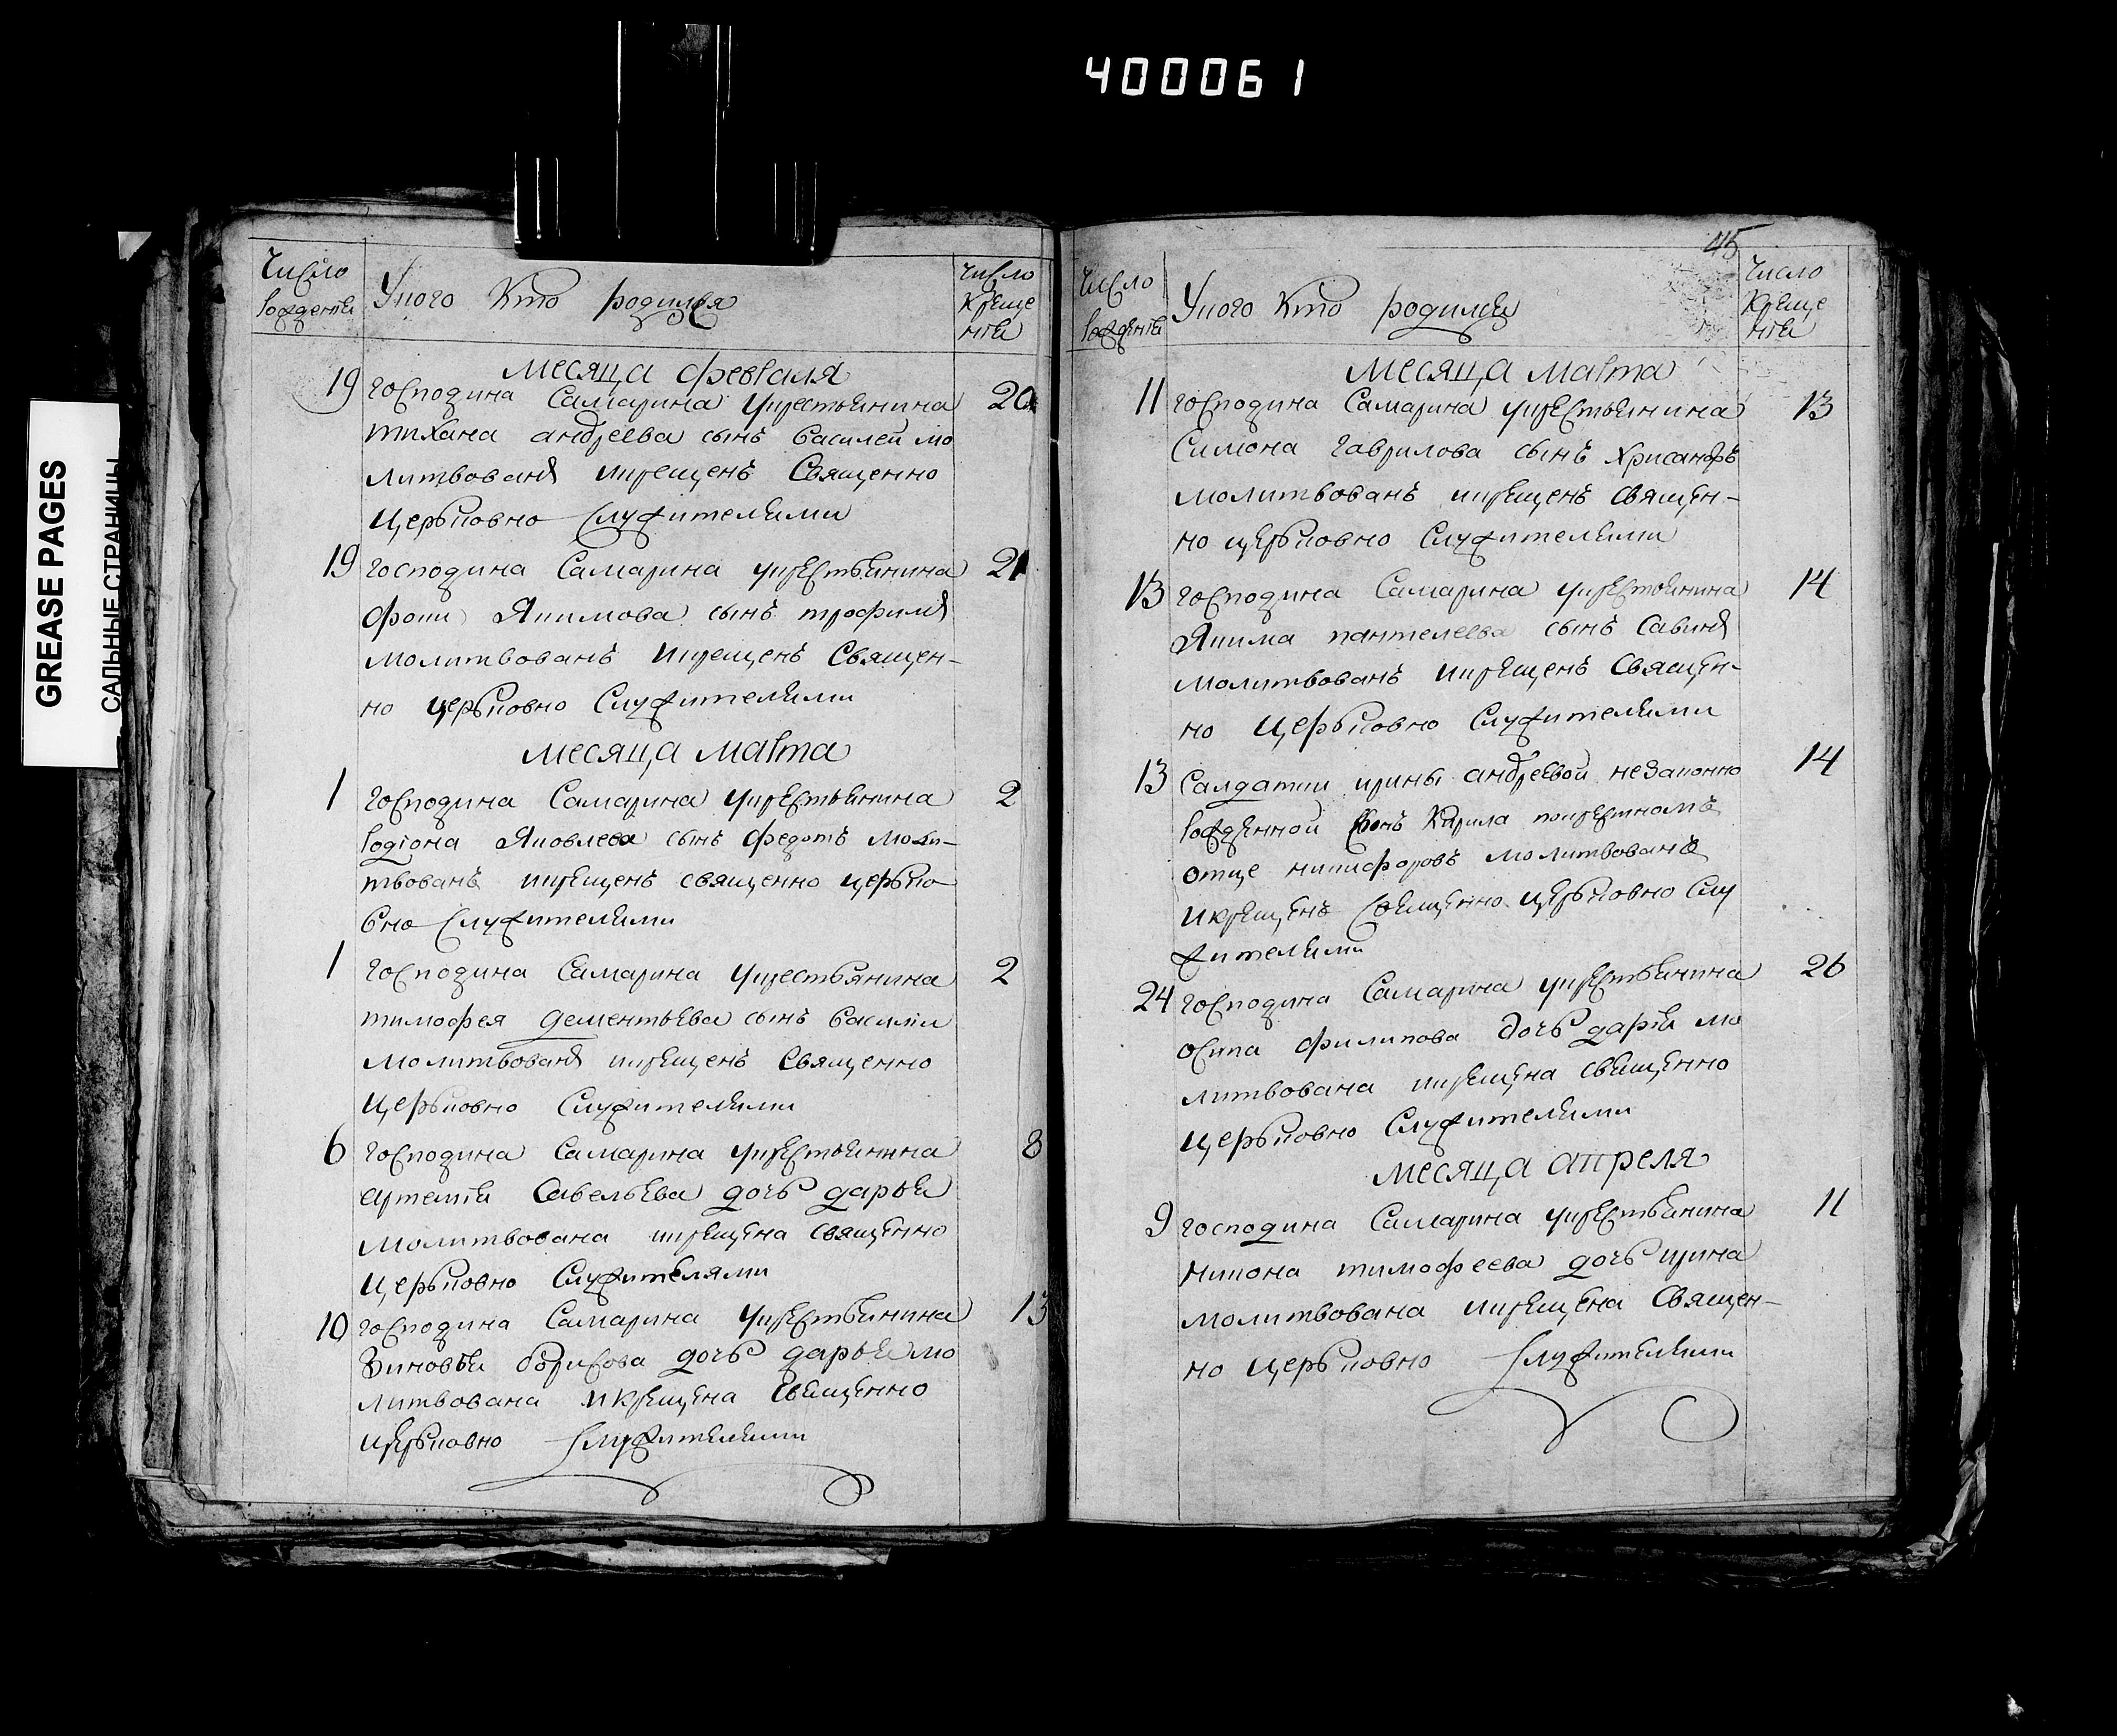 400061
GREASE PAGES
САЛЬНЫЕ СТРАНИЦЫ
Число
рожденія
У кого кто родился
Число
креще
нія
месяца февраля
19 господина Самарина укрестьянина 20
тихана андреева сынъ василей мо
литвованъ икрещенъ Священно
церьковно Служителями
19 господина Самарина укрестьянина 21
фоки Якимова сынъ трофимъ
молитвованъ икрещенъ Священ-
но церьковно Служителями
месяца марта
1 господина Самарина укрестьянина 2
родіона Яковлева сынъ федотъ моли-
твованъ икрещенъ священно церько
вно Служителями
1 господина Самарина укрестьянина 2
тимофея дементьева сынъ василіи
молитвованъ икрещенъ Священно
церьковно Служителями
6 господина Самарина укрестьянина 8
артемія Савельева дочь дарья
молитвована икрещена священно
церьковно Служителями
10 господина Самарина укрестьянина 13
Зиновья борисова дочь дарья мо
литвована икрещена священно
церьковно Служителями
45
Число
рожденія
У кого кто родился
Число
креще
нія
месяца марта
11 господина Самарина укрестьянина 13
Симона гаврилова сынъ хрисанфъ
молитвованъ икрещенъ священ-
но церьковно Служителями
13 господина Самарина укрестьянина 14
Якима пантелеева сынъ Савинъ
молитвованъ икрещенъ Священ-
но церьковно Служителями
13 Салдатки ирины андреевой незаконно 14
рожденной сынъ Кирила покрестномъ
отце никифоровъ молитвованъ
икрещенъ Священно церьковно Слу
жителями
24 господина Самарина укрестьянина 26
осипа филипова дочь дарія мо
литвована икрещена священно
церьковно Служителями
месяца апреля
9 господина Самарина укрестьянина 11
никона тимофеева дочь ирина
молитвована икрещена Священ-
но церьковно Служителями